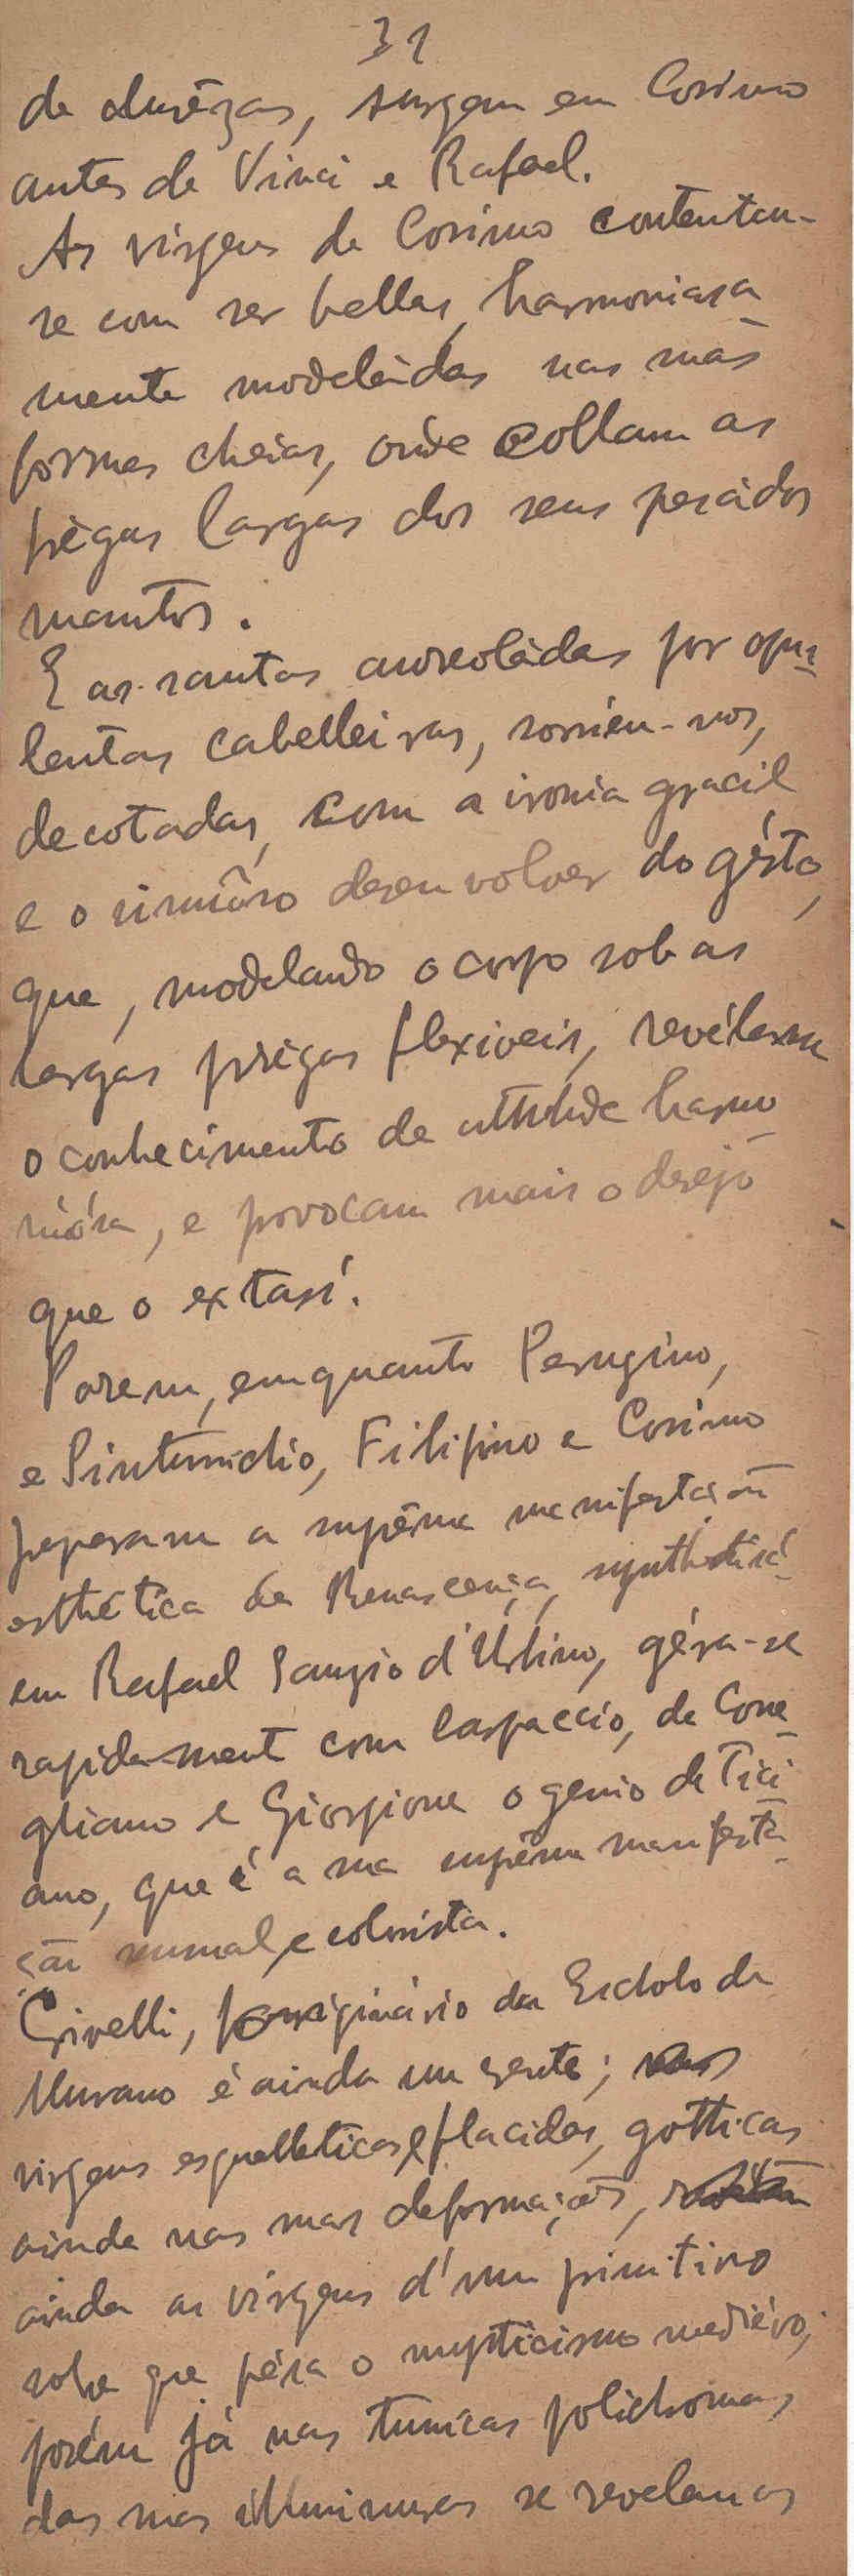 31
de durêzas, surgem em Cosimo
antes de Vinci e Rafael.
As virgens de Cosimo contentan-
se com ser bellas, harmoniosa
mente modeládas nas suas
formas cheias, onde collam as
prègas largas dos seus pesádos
mantos.
E as santas aureoládas por opu-
lentas cabelleiras, sorriem-nos,
decotadas, com a ironia gracil
e o sinuôso desenvolver do gésto,
que, modelando o corpo sob as
largas prègas flexiveis, revélam
o conhecimento de attitude harmo
niósa, e provocam mais o desejo
que o extasi.
Porem, emquanto Perugino,
e Pinturichio, Filipino e Cosimo
preparam a suprêma manifestação
esthética da Renascença, synthetisá-
em Rafael Sanzio d'Urbino, géra-se
rapidament com Carpaccio, de Cone-
gliano e Giorgione o genio de Tici-
ano, que é a sua suprêma manifesta-
ção sensual e colorista.
Crivelli, originário da Eschola de
Murano é ainda um crente;
virgens esqueleticas e flacidas, gotticas
ainda nas suas deformações,
ainda as virgens d'um primitivo
sobre que pésa o mysticismo mediévo,
porém já nas tunicas polichromas
das suas illuminuras se revelam os